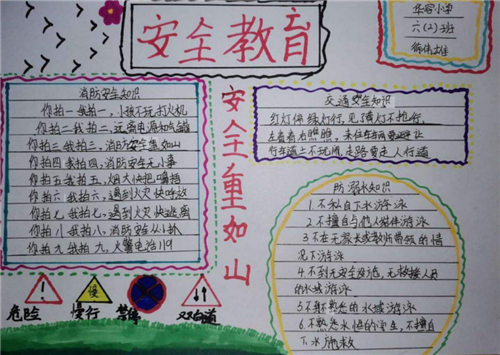 安全教育
华容小学
六(2)班
安全重如山
消防安全知识
你拍一我拍一,小孩不玩打火机
你拍二我拍二,远离电源和气罐
你拍三我拍三,消防安全重如山
你拍四我拍四,消防安全无小事
你拍五我拍五,烟大快把嘴捂
你拍六我拍六,遇到火灾快呼救
你拍七我拍七,遇到火灾快逃离
你拍八我拍八,消防安全从小抓
你拍九我拍九,火警电话119
交通安全知识
红灯停绿灯行,见黄灯不抢行,
左看看右照照,来往车辆要避让
行车道上不玩闹,走路要走人行道
防溺水知识
1.不私自下水游泳
2.不擅自与他人结伴游泳
3.不在无家长或教师带领的情
况下游泳
4.不到无安全设施,无救援人员
的水域游泳
5.不到不熟悉的水域游泳
6.不熟悉水性的学生,不擅自
下水施救
危险
慢
慢行
禁停
双向道